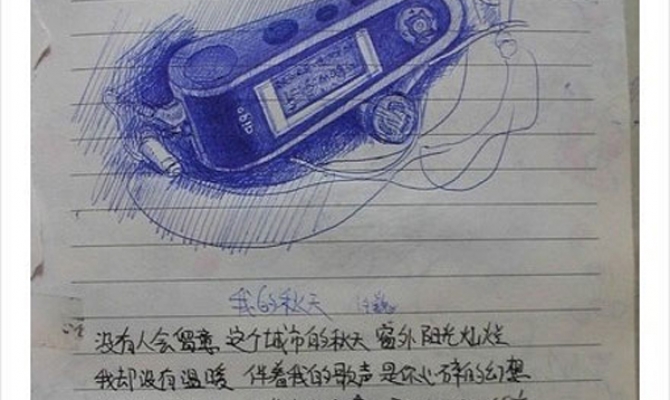 我的秋天 许巍
没有人会留意 这个城市的秋天 窗外阳光灿烂
我却没有温暖 伴着我的歌声 是你心碎的幻想